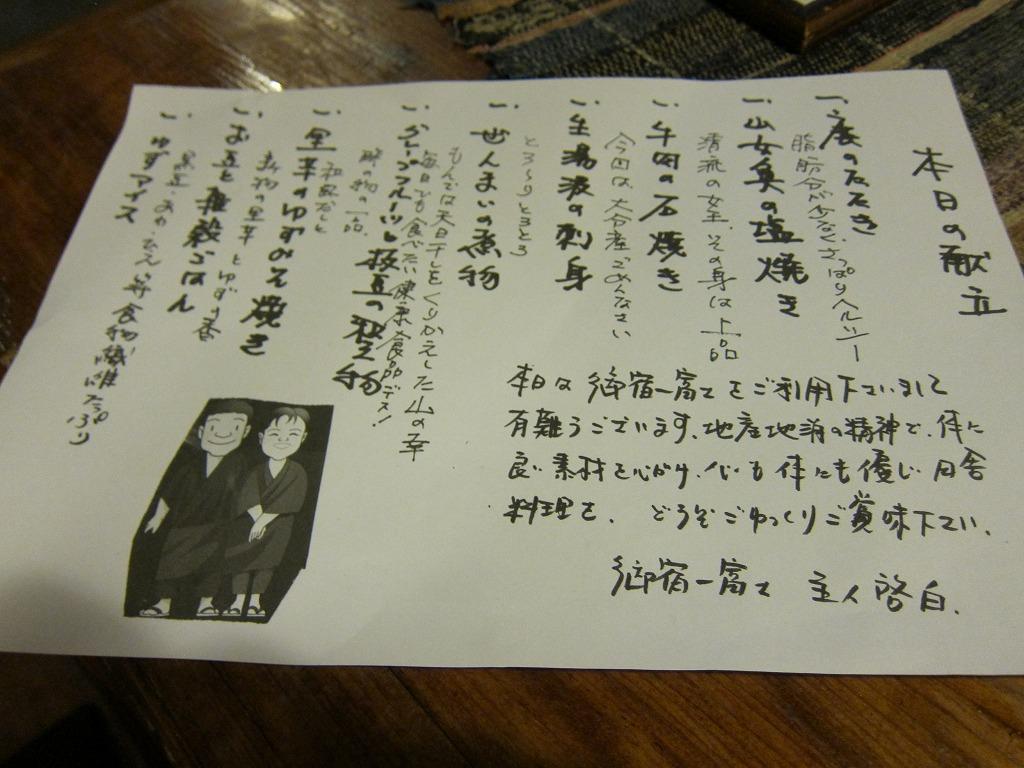 本日の献立
一、鹿のたたき
脂肪分が少なく、さっぱりヘルシー
一、山女魚の塩焼き
清流の女王、その身は上品
一、牛肉の石焼き
今回は、大分産ごめんなさい
一、生湯波の刺身
とろ〜りとろとろ
一、ぜんまいの煮物
もんでは天日干しをくりかえした山の幸
一、グレープフルーツと抜豆の和え物
毎日でも食べたい健康食品デス!
酢の物の一品
一、里芋のゆずみそ焼き
和歌なしと
新物の里芋とゆずの香
一、お豆と雑穀ごはん
黒豆・あわ・ひえ等食物繊維たっぷり
一、ゆずアイス
本日は御宿一富士をご利用下さいまして
有難うございます。地産地消の精神で、体に
良い素材を心がけ、心にも体にも優しい田舎
料理を、どうぞごゆっくりご賞味下さい。
御宿一富士 主人敬白.